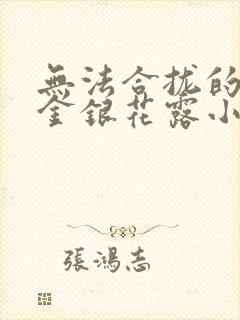 無法合拢的
金銀花露小
張鴻志